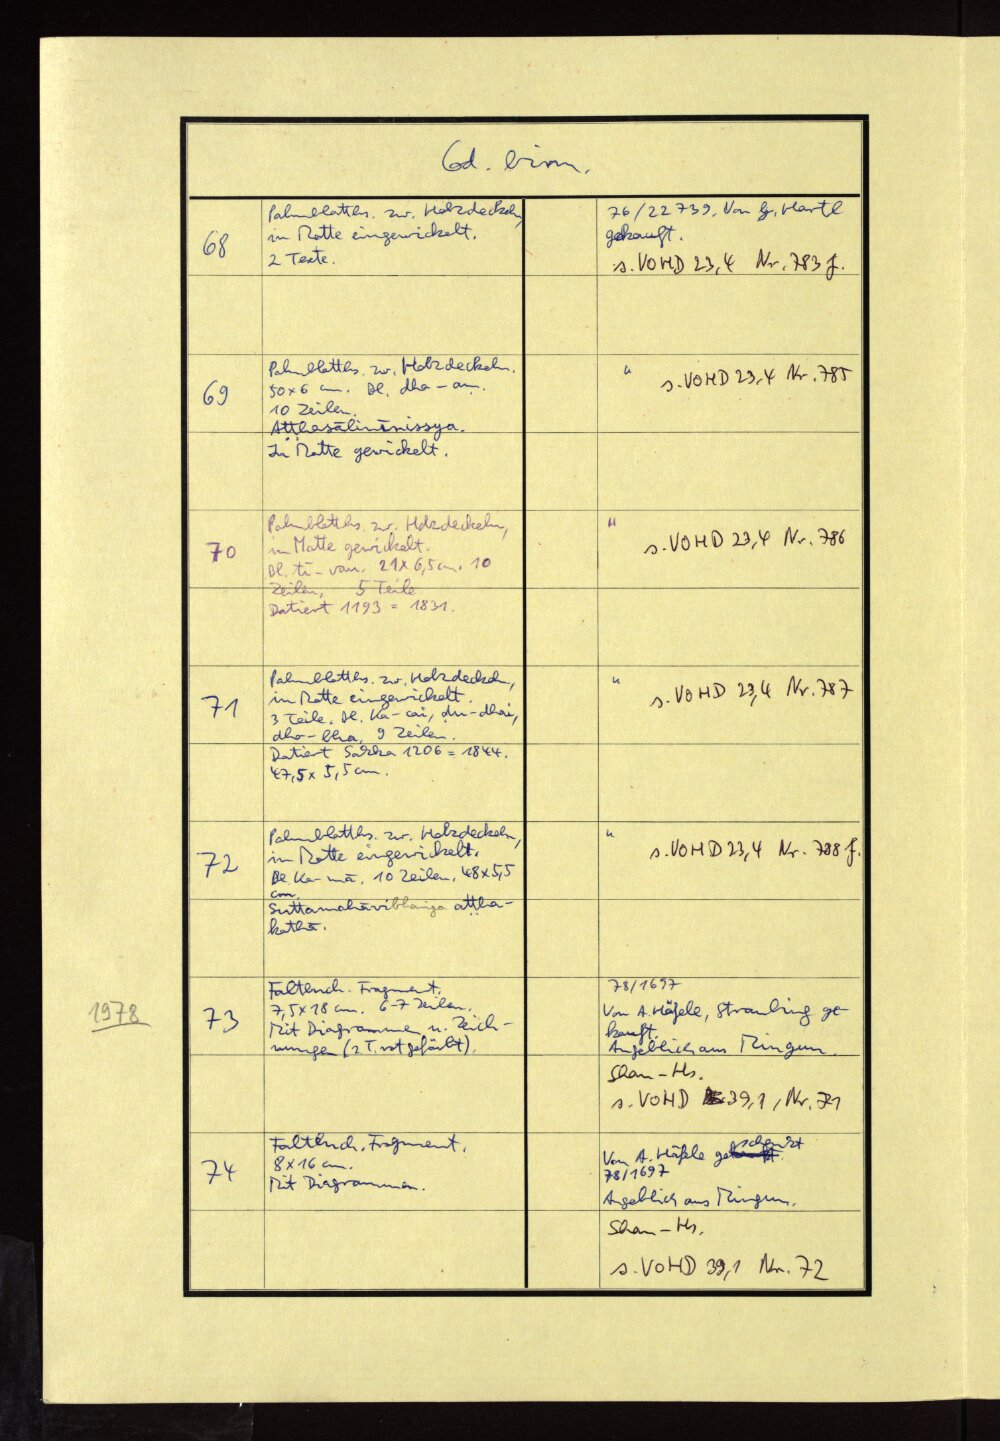 Cod. birm.
68
Palmblatths. zw. Holzdeckeln,
in Matte eingewickelt.
2 Texte.
76/22739. Von G. Hartl
gekauft.
s. VOHD 23,4 Nr. 783 f.
69
Palmblatths. zw. Holzdeckeln.
50x6 cm. Bl. dha-aṃ.
10 Zeilen.
Aṭṭhasālinīnissya.
In Matte gewickelt.
"
s. VOHD 23,4 Nr. 785
70
Palmblatths. zw. Holzdeckeln,
in Matte gewickelt.
Bl. ti-vau. 21x6,5 cm. 10
Zeilen, 5 Teile
Datiert 1193 = 1831.
"
s. VOHD 23,4 Nr. 786
71
Palmblatths. zw. Holzdeckeln,
in Matte eingewickelt.
3 Teile. Bl. Ka-cai, du-dhai,
dho-bha, 9 Zeilen.
Datiert Sakka 1206 = 1844.
47,5x5,5 cm.
"
s. VOHD 23,4 Nr. 787
72
Palmblatths. zw. Holzdeckeln,
in Matte eingewickelt.
Bl. Ka-mā. 10 Zeilen. 48x5,5
cm.
Suttamahāvibhaṅga aṭṭha-
kathā.
"
s. VOHD 23,4 Nr. 788 f.
1978
73
Faltbuch. Fragment.
7,5x18 cm. 6-7 Zeilen.
Mit Diagrammen u. Zeich-
nungen (z.T. rot gefärbt).
78/1697
Von A. Häfele, Straubing ge-
kauft.
Angeblich aus Mingun.
Shan-Hs.
s. VOHD 39,1, Nr. 71
74
Faltbuch. Fragment.
8x16 cm.
Mit Diagrammen.
Von A. Häfele geschenkt
78/1697
Angeblich aus Mingun.
Shan-Hs.
s. VOHD 39,1 Nr. 72